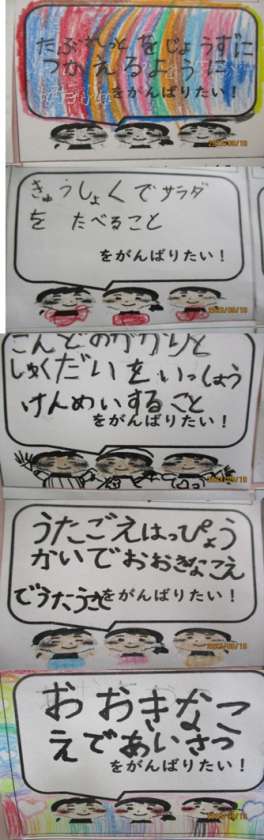 たぶれっとをじょうずに
つかえるように
をがんばりたい！
きゅうしょくでサラダ
を たべること
をがんばりたい！
こんどのががりと
しゅくだいをいっしょう
けんめいするごと
をがんばりたい！
うたごえはっぴょう
かいでおおきなこえ
でうたうこと をがんばりたい！
おおきなこ
えであいさつ
をがんばりたい！